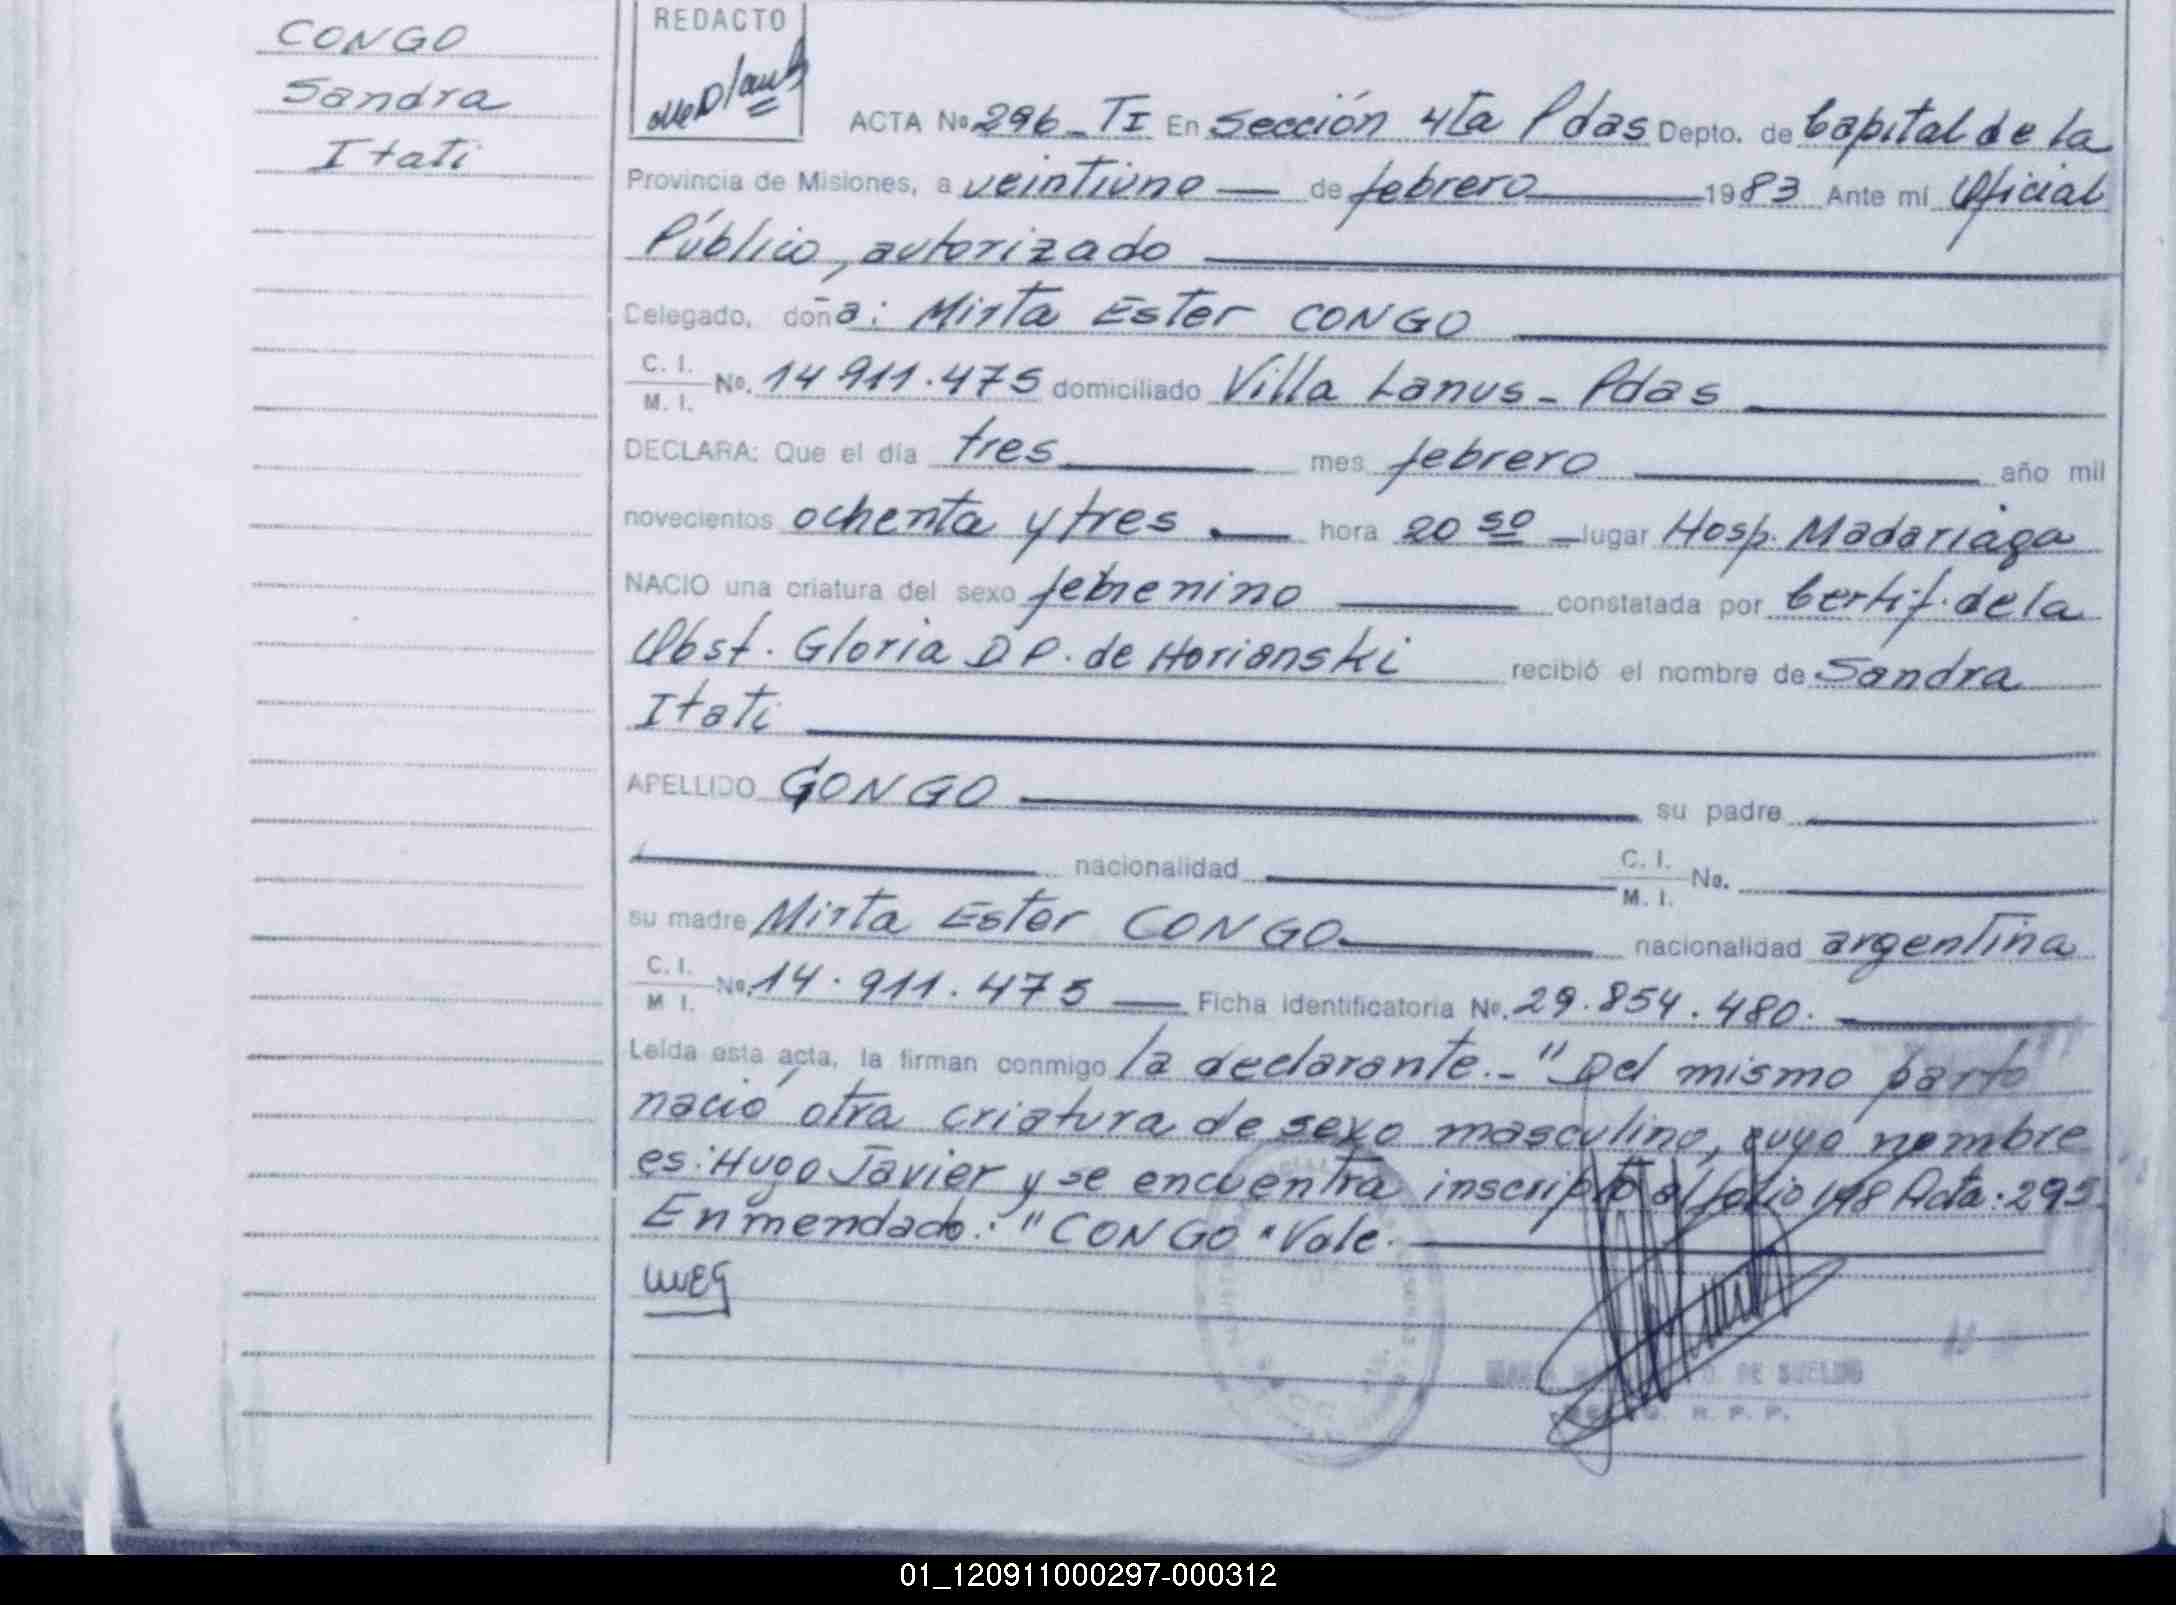 CONGO
Sandra
Itati
REDACTO
ACTA No 296 - TI En Sección 4Ta Pdas Depto. de Capital de la
Provincia de Misiones, a veintiuno de febrero 1983 Ante mí Oficial
Público, autorizado
Delegado, doña: Mirta Ester CONGO
C. I.
M. I. No. 14 911.475 domiciliado Villa Lanus - Pdas
DECLARA: Que el día tres mes febrero año mil
novecientos ochenta y tres hora 20 50 lugar Hosp. Madariaga
NACIO una criatura del sexo femenino constatada por Certif. de la
Obst. Gloria D P. de Horianski recibió el nombre de Sandra
Itati
APELLIDO CONGO su padre
nacionalidad C. I.
M. I. No.
su madre Mirta Ester CONGO nacionalidad argentina
C. I.
M I. No. 14.911.475 Ficha identificatoria No. 29.854.480.
Leída esta acta, la firman conmigo la declarante.- "Del mismo parto
nació otra criatura de sexo masculino, cuyo nombre
es: Hugo Javier y se encuentra inscripto al folio 148 Acta: 295.
Enmendado: "CONGO" Vale.
DE SUELDO
R. P. P.
01_120911000297-000312